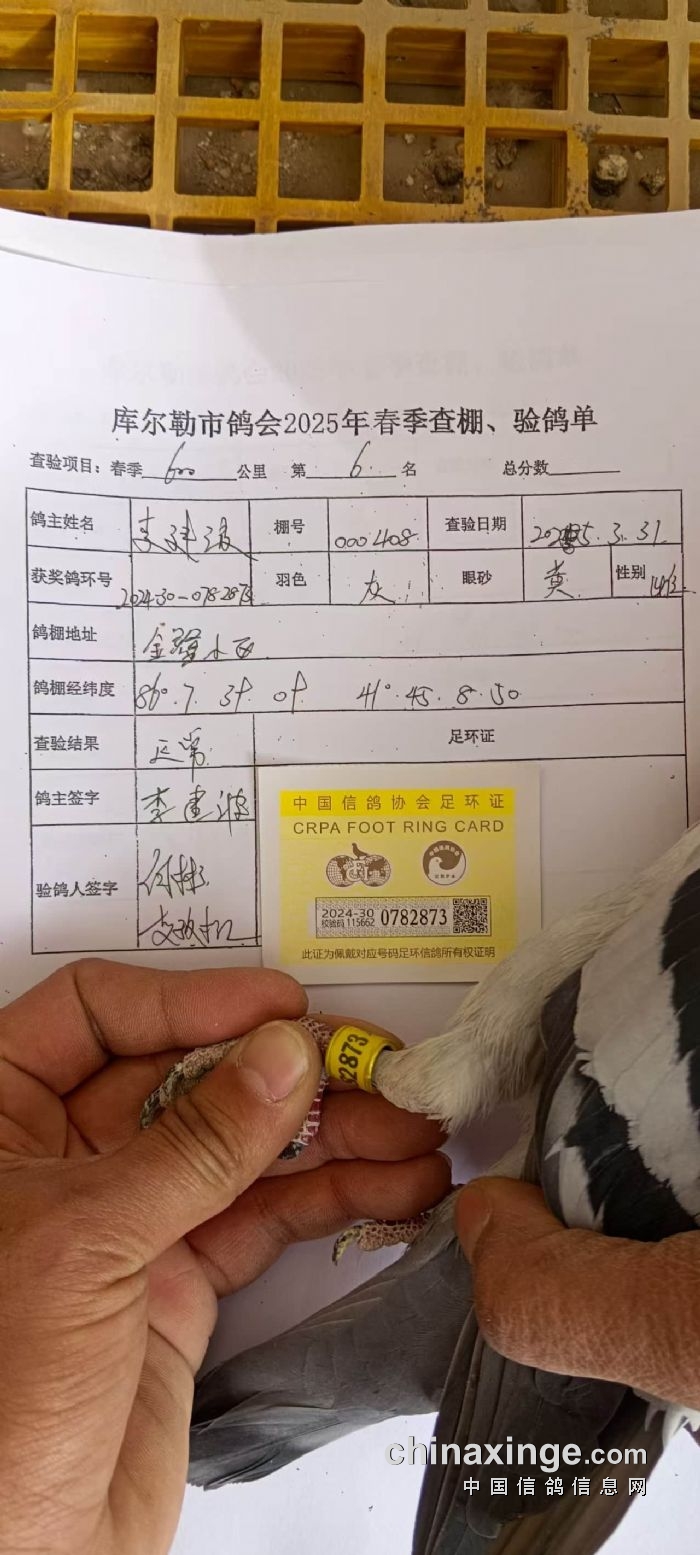 库尔勒市鸽会2025年春季查棚、验鸽单
查验项目：春季 600 公里 第 6 名 总分数
鸽主姓名 李建波 棚号 000408 查验日期 2025.3.31
获奖鸽环号 2024-30-0782873 羽色 灰 眼砂 黄 性别
鸽棚地址
鸽棚经纬度 86°.7. 41°.45.8.50
查验结果 正常 足环证
鸽主签字 李建波
验鸽人签字
中国信鸽协会足环证
CRPA FOOT RING CARD
2024-30
校验码 115662 0782873
此证为佩戴对应号码足环信鸽所有权证明
2873
chinaxinge.com
中国信鸽信息网